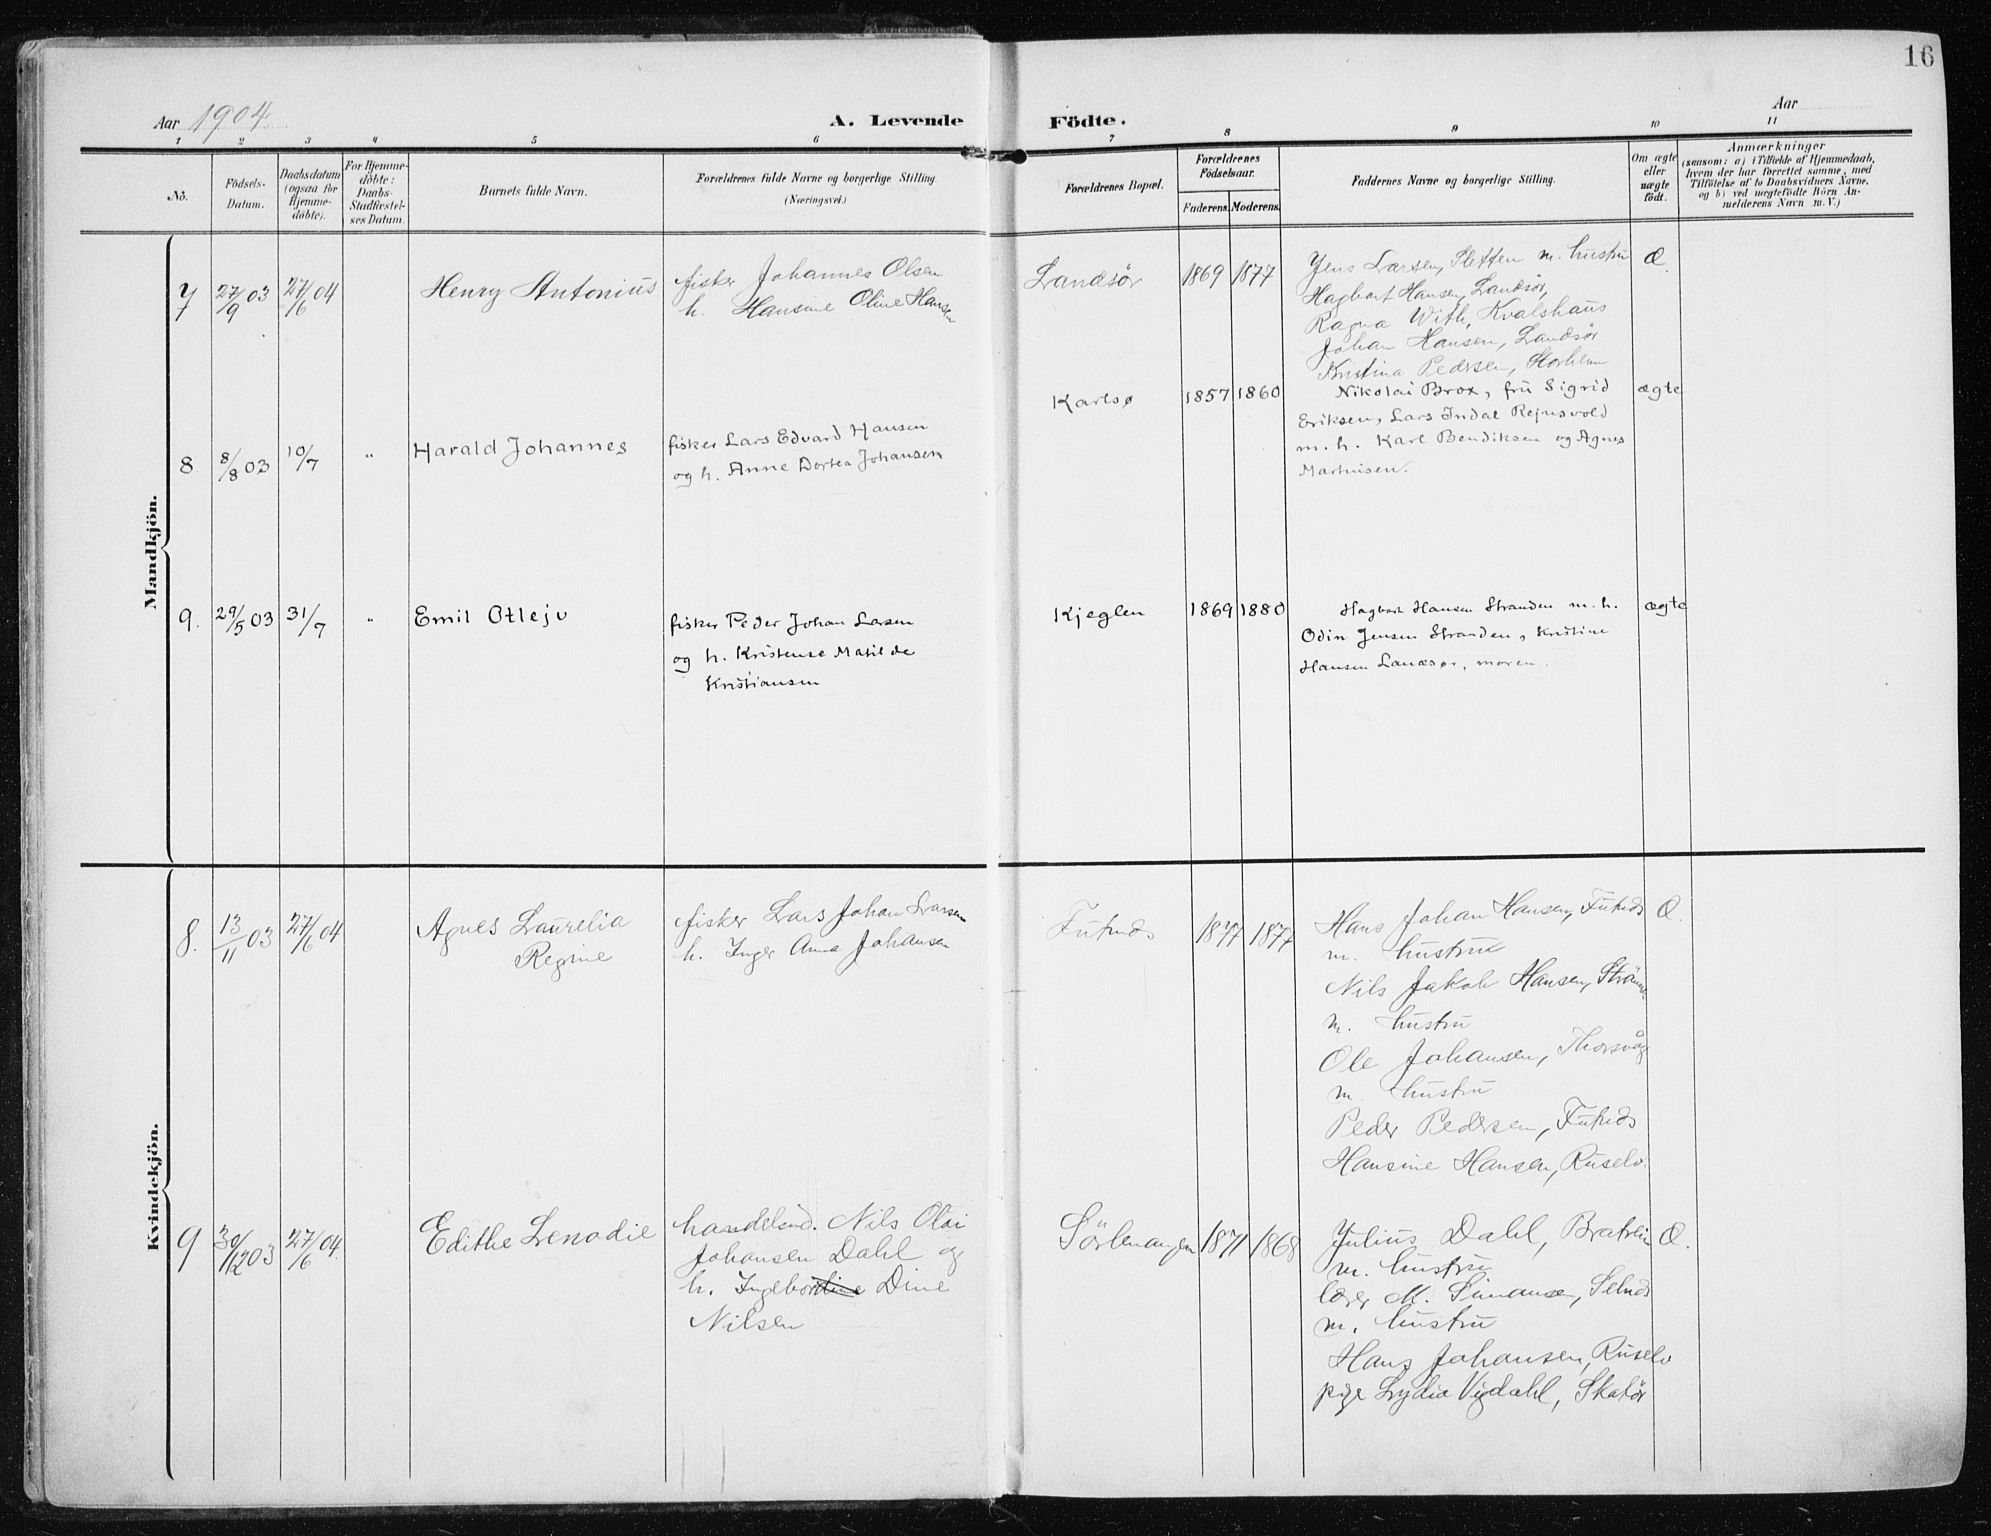 16
Aar 1904
A. Levende Födte.
Aar
1 2 3 4 5 6 7 8 9 10 11
No.
Födsels-
Datum.
Daabsdatum
(ogsaa for
Hjemme-
döbte).
For Hjemme-
döbte:
Daabs-
Stadfæstel-
ses Datum.
Barnets fulde Navn.
Forældrenes fulde Navne og borgerlige Stilling
(Næringsvei.)
Forældrenes Bopæl.
Forældrenes
Födselsaar.
Faderens. Moderens.
Faddernes Navne og borgerlige Stilling.
Om ægte
eller
uægte
födt.
Anmærkninger
(saasom: a) i Tilfælde af Hjemmedaab,
hvem der har forrettet samme, med
Tilföielse af to Daabsvidners Navne,
og b) ved uægtefödte Börn An-
melderens Navn m. V.)
Mandkjön.
7 27/9 03 27/6 04 Henry Antonius
fisker Johannes Olsen
h. Hansine Oline Hansen
Landsör 1869 1877
Jens Larsen, Sletten m. hustru Æ.
Hagbart Hansen, Landsör,
Ragna With, Kvalshaus
Johan Hansen, Landsör
Kristina Pedersen, Storheim
8 8/8 03 10/7 " Harald Johannes
fisker Lars Edvard Hansen
og h. Anne Dortea Johansen
Karlsø 1857 1860
Nikolai Brox, frü Sigrid ægte
Eriksen, Lars Indal Rejnsvold
m. h. Karl Bendiksen og Agnes
Martinsen.
9. 29/5 03 31/7 " Emil Otleju
fisker Peder Johan Larsen
og h. Kristense Matilde
Kristiansen
Kjeglen 1869 1880
Hagbart Hansen Stranden m. h. ægte
Odin Jensen Stranden, Kristine
Hansen Landsør, moren.
Kvindekjön.
8. 13/11 03 27/6 04 Agnes Laurelia
Regine
fisker Lars Johan Larsen
h. Inger Anna Johansen
1877 1877
Hans Johan Hansen, Æ.
m. hustru
Nils Jakob Hansen,
m. hustru
Ole Johansen, Thorsvåg
m. hustru
Peder Pedersen,
Hansine Hansen, Ruselv.
9 30/12 03 27/6 04. Edithe Lenodie
handelsmd. Nils Olai
Johansen Dahl og
h. Ingebor Dine
Nilsen
Sörlenangen 1871 1868
Julius Dahl, Bratrein Æ.
m. hustru
lærer M. Simonsen,
m. hustru
Hans Johansen, Ruselv
pige Lydia Vigdahl, Skatör